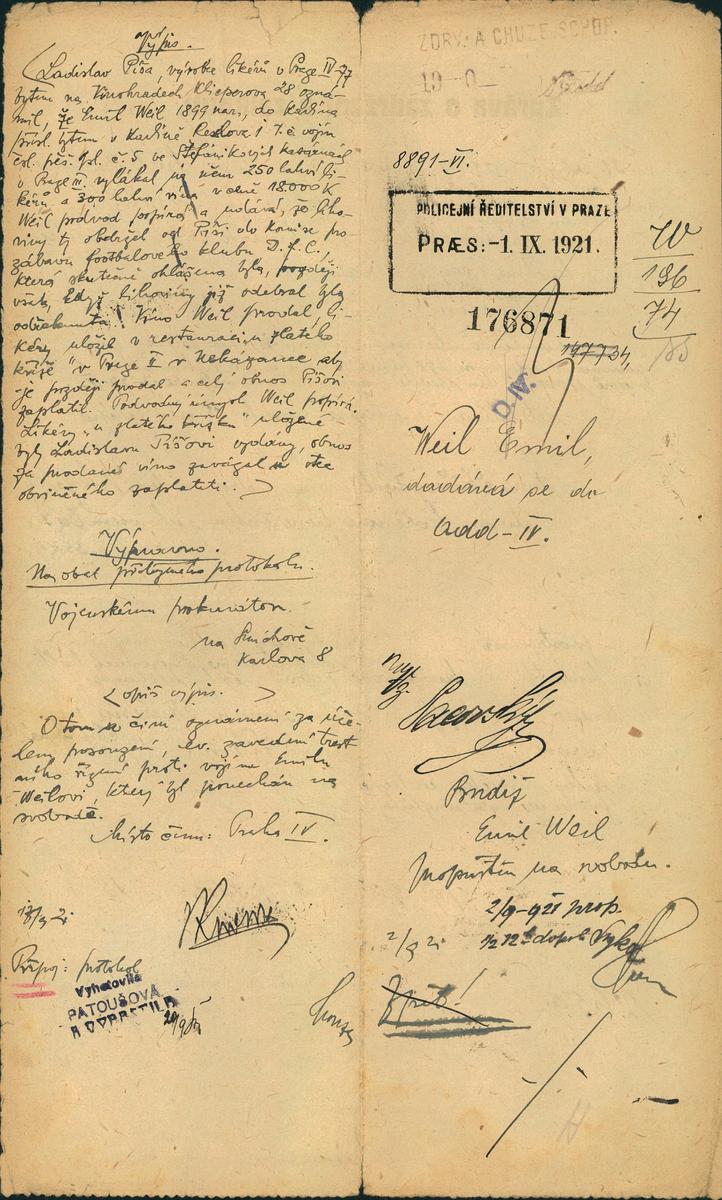 Výpis.
Ladislav Píša, výrobce likérů v Praze IV-77
bytem na Vinohradech Klicperova 28 ozná-
mil, že Emil Weil 1899 nar., do Karlína
přísl. bytem v Karlíně Resslova 1 t.č. vojín
čsl. pěš. pl. č. 5 ve Štefánikových kasárnách
v Praze III. vylákal na něm 250 lahví li-
kérů a 300 lahví vína v ceně 18000 K
Weil podvod popírá a udává, že liho-
viny ty obdržel od Píši do komise pro
zábavu footbalového klubu D.F.C.,
která skutečně ohlášena byla, později
však, když lihoviny již odebral byla
odřeknuta. Víno Weil prodal, li-
kéry uložil v restauraci u zlatého
křížk " v Praze II v Nekázance aby
je později prodal a celý obnos Píšovi
zaplatil. Podvodný úmysl Weil popírá.
Likéry „u zlatého křížku" uložené
byly Ladislavu Píšovi vydány, obnos
za prodané víno zavázal se otec
obviněného zaplatiti.
Vypraveno.
Na obal protokolu.
Vojenskému prokurátoru
na Smíchově
Karlova 8
<opis výpis. >
O tom se činí oznámení za úče-
lem posouzení, ev. zavedení trest
ního řízení proti vojínu Emilu
Weilovi, který byl ponechán na
svobodě.
Místo činu: Praha IV.
Připoj: protokol
Vyhotovila
PATOUŠOVÁ
ZDRV. A CHUZE SCHOP.
19-0-
8891-VI.
POLICEJNÍ ŘEDITELSTVÍ V PRAZE
PRÆS: -1. IX. 1921.
W
196
74
176871
147734,
D.IV.
Weil Emil,
dodává se do
odd-IV.
Emil Weil
propuštěn na svobodu.
2/9-921 prop.
2/9 21 ½12 dopol
Zpět!